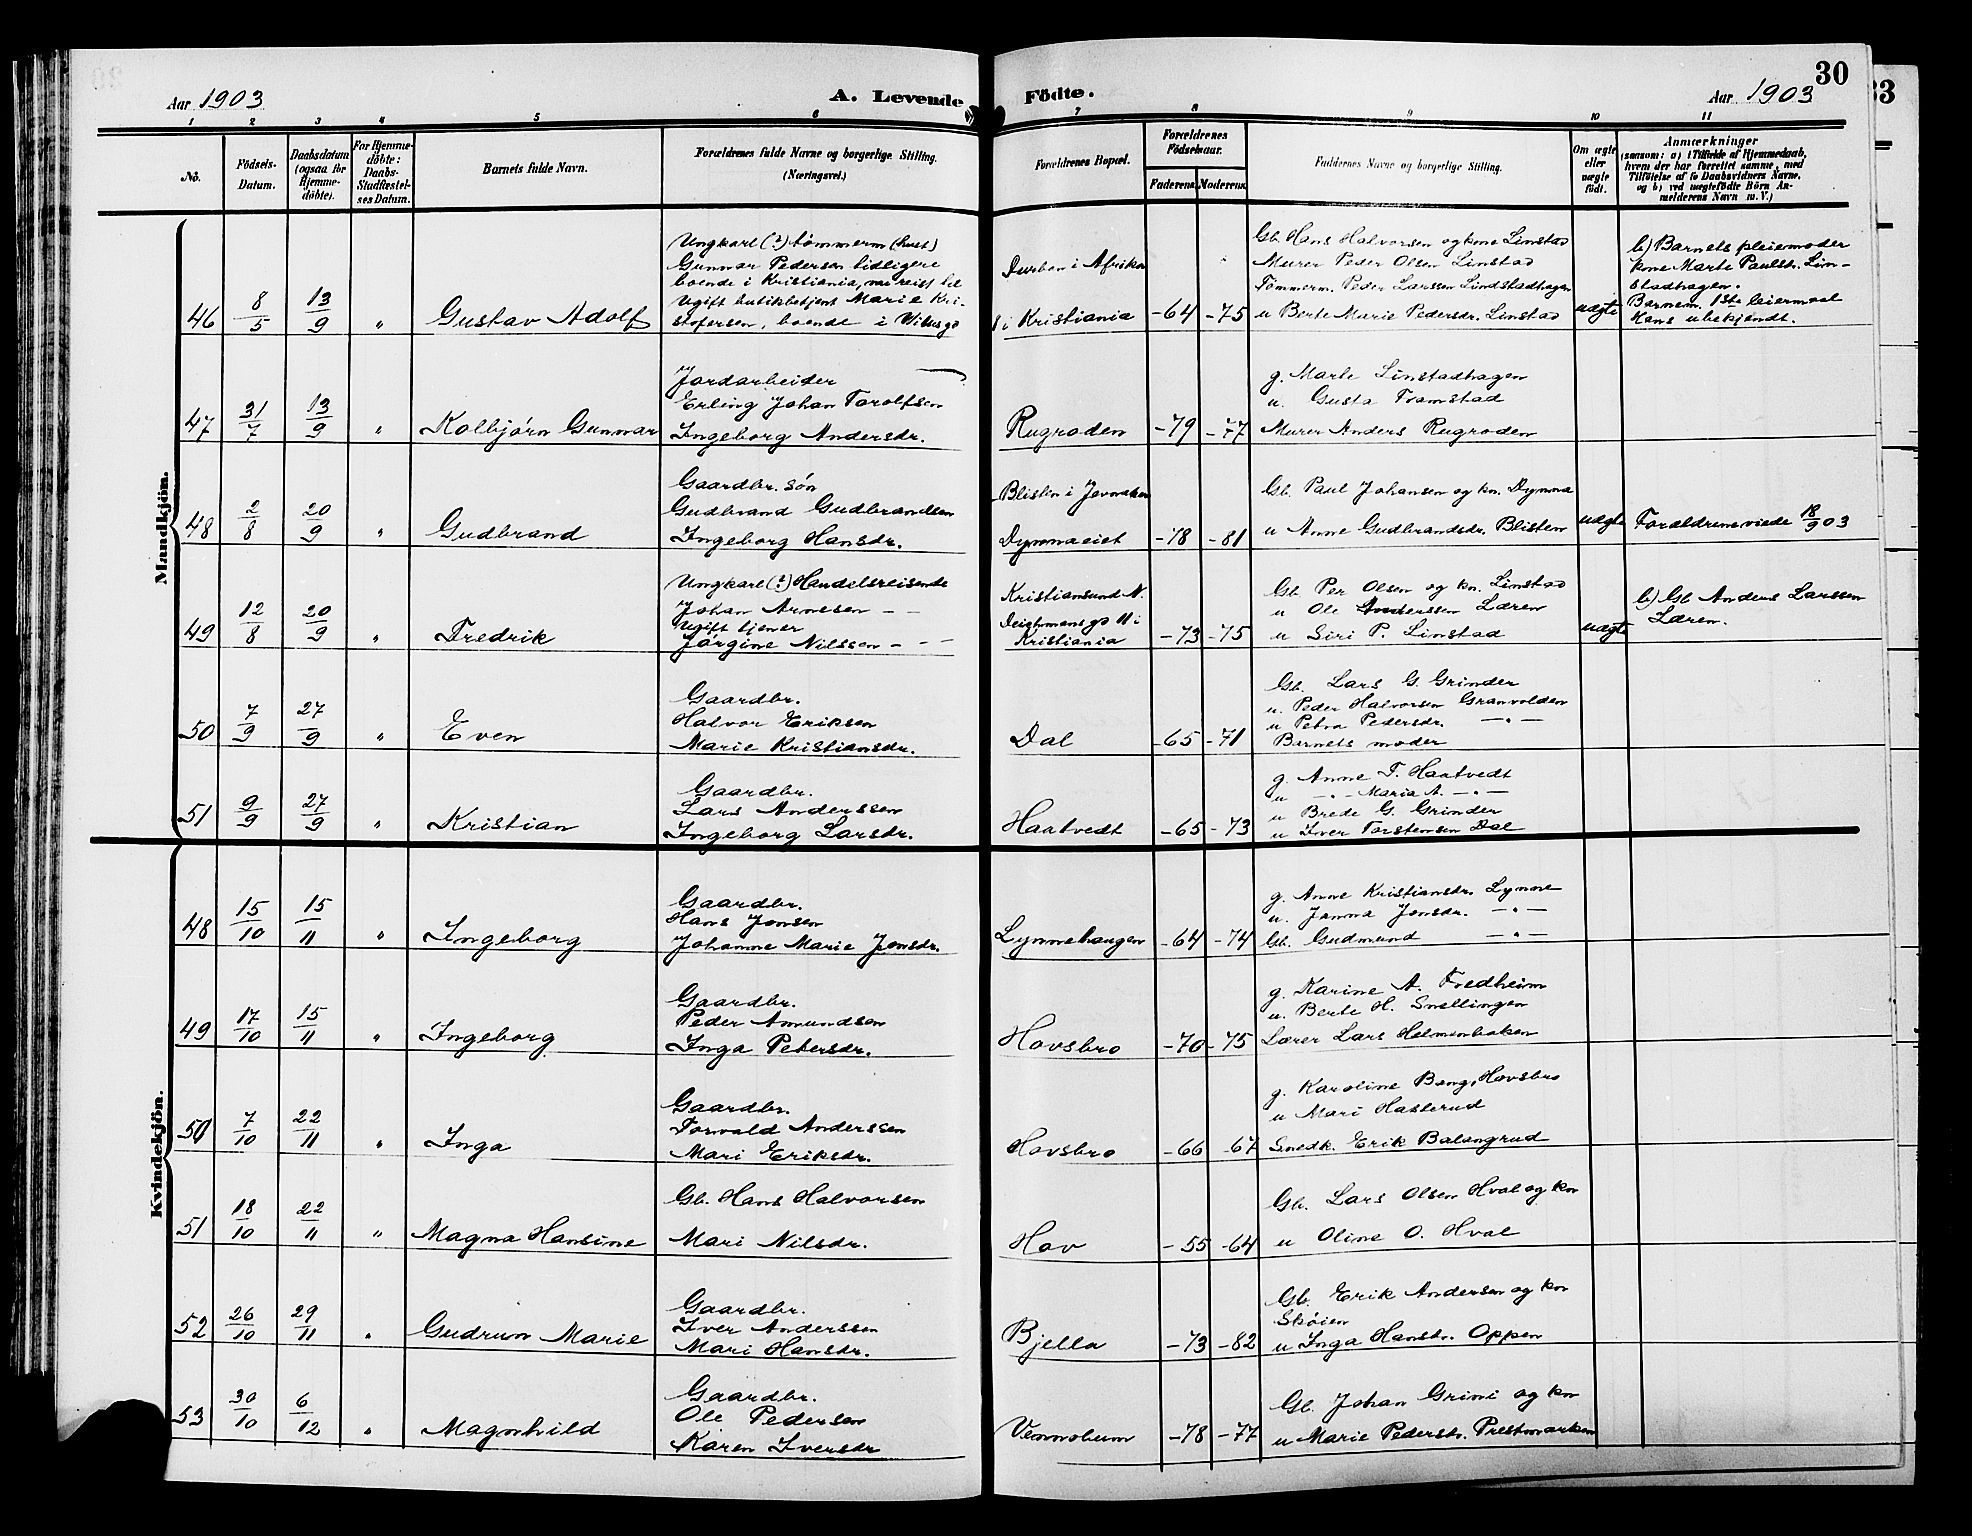 30
33
Aar 1903
A. Levende Födte.
Aar 1903
1 2 3 4 5 6 7 8 9 10 11
No.
Födsels-Datum.
Daabsdatum (ogsaa for Hjemme-döbte).
For Hjemme-döbte: Daabs-Stadfæstel-ses Datum.
Barnets fulde Navn.
Forældrenes fulde Navne og borgerlige Stilling. (Næringsvei.)
Forældrenes Bopæl.
Forældrenes Födselsaar.
Faderens. Moderens.
Faddernes Navne og borgerlige Stilling.
Om ægte eller uægte födt.
Anmærkninger
(saasom: a) i Tilfælde af Hjemmedaab, hvem der har forrettet samme, med Tilföielse af to Daabsvidners Navne, og b) ved uægtefödte Börn An-melderens Navn m. V.)
Mandkjön.
46 8/5 13/9 " Gustav Adolf
Ungkarl (?) tømmerm (hust)
Gunnar Pedersen tidligere
boende i Kristiania, nu reist til
Ugift butikbetjent Marie Kri-
stofersen, boende i Wilsesgd
Durban i Afrika
8 i Kristiania -64 -75
Gb. Hans Halvorsen og kone Linstad
Murer Peder Olsen Linstad
Tömmerm. Peder Larssen Lindstadhagen
u Berte Marie Pedersdr. Linstad
uægte
b) Barnets pleiemoder
kone Marte Paulsdr. Lin-
stadhagen.
Barnem. 1ste leiermaal
Hans ubekjendt.
47 31/7 13/9 " Kolbjørn Gunnar
Jordarbeider
Erling Johan Torolfsen
Ingeborg Andersdr.
Rugroden -79 -77
g. Marte Linstadhagen
u. Gusta Tramstad
Murer Anders Rugroden
48 2/8 20/9 " Gudbrand
Gaardbr. søn
Gudbrand Gudbrandsen
Ingeborg Hansdr.
Blisten i Jevnaker
Dynnaeiet -78 -81
Gb. Paul Johansen og kn. Dynna
u Anne Gudbrandsdr. Blisten
uægte Forældrene viede 18/9 03
49 12/8 20/9 " Fredrik
Ungkarl (?) Handelsreisende
Johan Arnesen - -
Ugift tjener
Jørgine Nilssen - - -
Kristiansund N.
Deichmansgd 11 i
Kristiania -73 -75
Gb. Per Olsen og kn. Linstad
u Ole Anderssen Læren
u Siri P. Linstad
uægte
b) Gb Anders Larssen
Læren.
50 7/9 27/9 " Even
Gaardbr.
Halvor Eriksen
Marie Kristiansdr.
Dal -65 -71
Gb. Lars G. Grinder
u. Peder Halvorsen Granvolden
u Petra Pedersdr. — " —
Barnets moder
51 9/9 27/9 " Kristian
Gaardbr.
Lars Anderssen
Ingeborg Larsdr.
Haatvedt -65 -73
g. Anne T. Haatvedt
u — " - Maria A. — " —
u Brede G. Grinder
u Iver Torstensen Dal
Kvindekjön.
48 15/10 15/11 " Ingeborg
Gaardbr.
Hans Jonsen
Johanne Marie Jonsdr.
Lynnehaugen -64 -74
g. Anne Kristiansdr. Lynne
u. Janna Jonsdr. — " —
Gb. Gudmund — " —
49 17/10 15/11 " Ingeborg
Gaardbr.
Peder Amundsen
Inga Petersdr.
Hovsbro -70 -75
g. Karine A. Fredheim
u. Berte H. Snellingen
Lærer Lars Helmenbakken
50 7/10 22/11 " Inga
Gaardbr.
Torvald Anderssen
Mari Eriksdr.
Hovsbro -66 -67
g. Karoline Bang, Hovsbro
u Mari Haslerud
Snedk. Erik Balangrud
51 18/10 22/11 " Magna Hansine
Gb. Hans Halvorsen
Mari Nilsdr.
Hov -55 -64
Gb. Lars Olsen Hval og kn
u Oline O. Hval
52 26/10 29/11 " Gudrun Marie
Gaardbr.
Iver Anderssen
Mari Hansdr.
Bjella -73 -82
Gb. Erik Andersen og kn
Skøien
u Inga Hansdr. Oppen
53 30/10 6/12 " Magnhild
Gaardbr.
Ole Pedersen
Karen Iversdr
Vennohum -78 -77
Gb. Johan Grini og kn
u Marie Pedersdr. Prestmarken